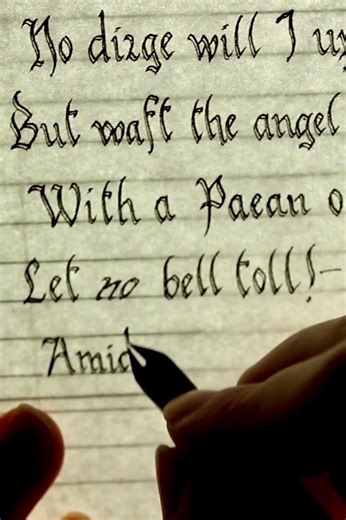 No dirge will I up
But waft the angel
With a Paean o
Let no bell toll!—
Amid